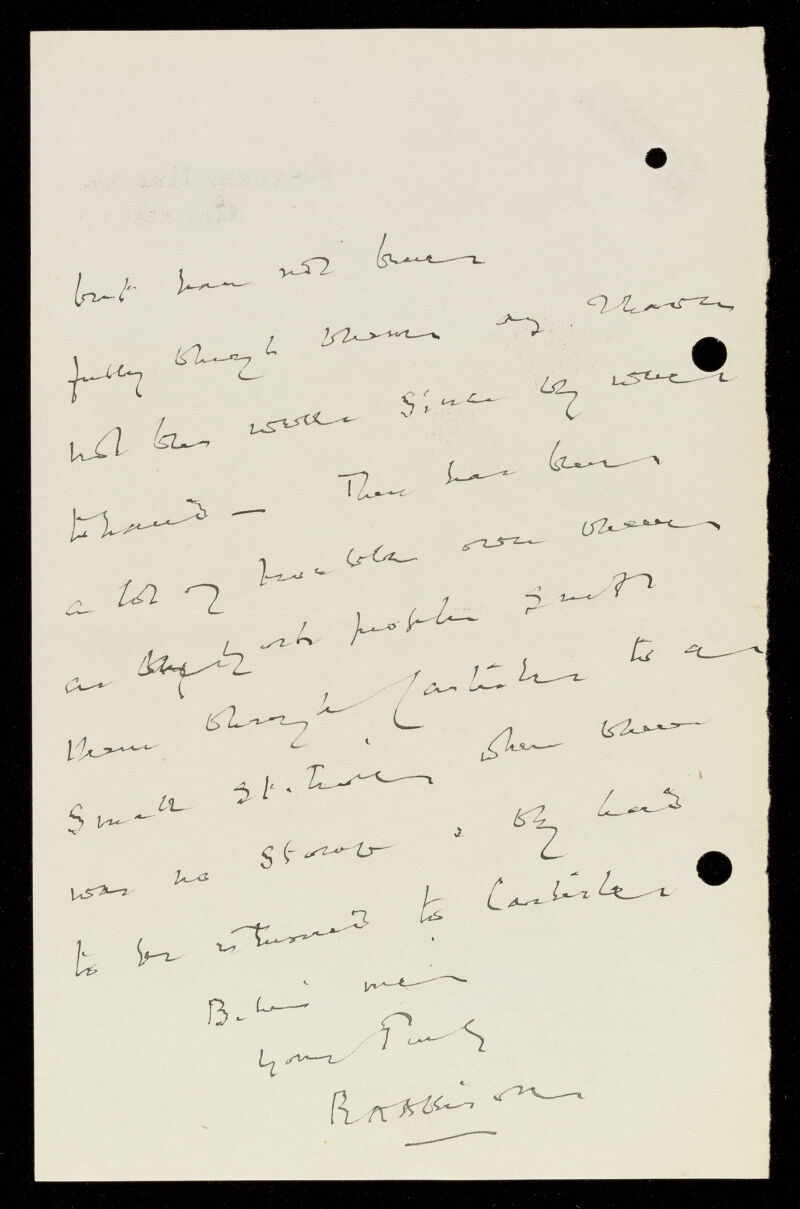 but have not been
fully through them as I have
not been well since they were
to hand — There has been
a lot of trouble over them
as they people sent
them through Carlisle to a
small station where there
was no storage & they had
to be returned to Carlisle
Believe me
yours truly